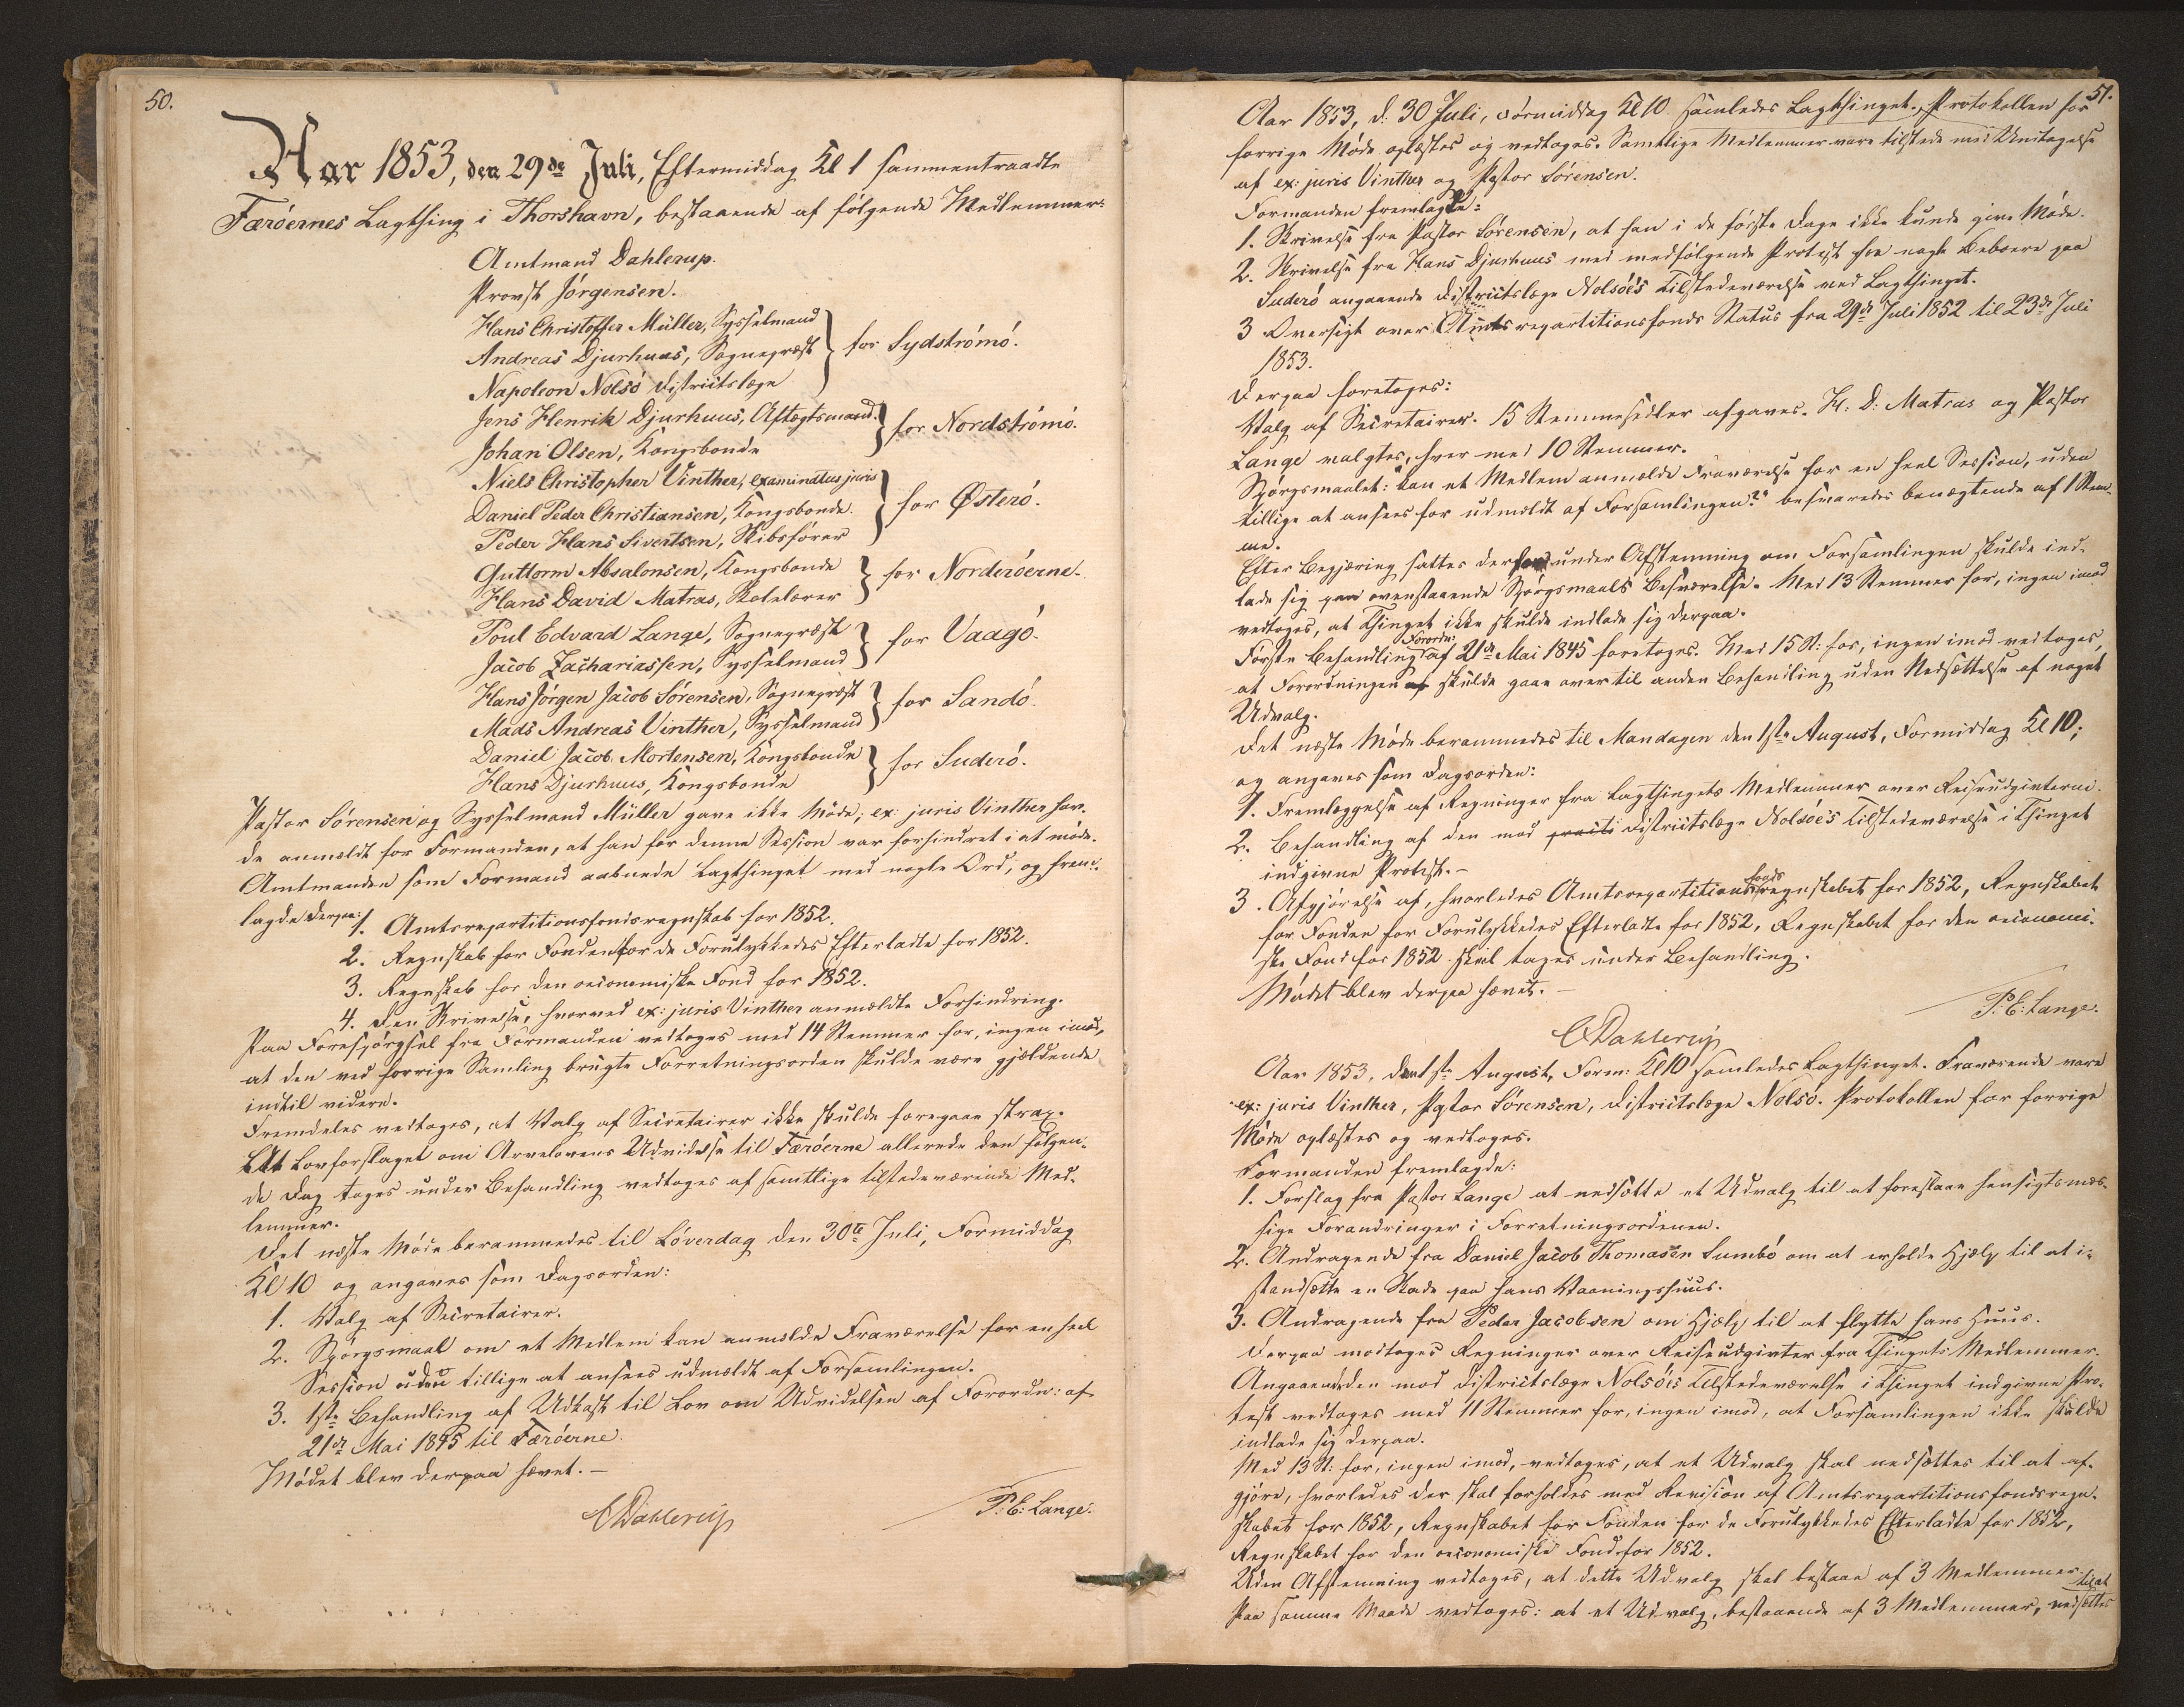 50.
Aar 1853, den 29de Juli, Eftermiddag Kl 1 sammentraadte
Færöernes Lagthing i Thorshavn, bestaaende af følgende Medlemmer:
Amtmand Dahlerup.
Provst Jörgensen.
Hans Christoffer Müller, Sysselmand
Andreas Djurhuus, Sognepræst } for Sydströmö.
Napoleon Nolsö Districtslæge
Jens Henrik Djurhuus, Aftægtsmand } for Nordströmö.
Johan Olsen, Kongsbonde
Niels Christopher Vinther, examinatus juris
Daniel Peder Christiansen, Kongsbonde } for Österö.
Peder Hans Sivertsen, Skibsförer
Guttorm Absalonsen, Kongsbonde } for Norderöerne.
Hans David Matras, Skolelærer
Poul Edvard Lange, Sognepræst } for Vaagö.
Jacob Zachariassen, Sysselmand
Hans Jörgen Jacob Sörensen, Sognepræst } for Sandö.
Mads Andreas Vinther, Sysselmand
Daniel Jacob Mortensen, Kongsbonde } for Suderö.
Hans Djurhuus, Kongsbonde
Pastor Sörensen og Sysselmand Müller gave ikke Möde; ex: juris Vinther hav-
de anmeldt for Formanden, at han for denne Session var forhindret i at möde.
Amtmanden som Formand aabnede Lagthinget med nogle Ord, og frem-
lagde derpaa: 1. Amtsrepartitionsfondsregnskab for 1852.
2. Regnskab for Fonden for de Forulykkedes Efterladte for 1852.
3. Regnskab for den oeconomiske Fond for 1852.
4. Den Skrivelse, hvorved ex: juris Vinther anmeldte Forhindring.
Paa Forespörgsel fra Formanden vedtoges med 14 Stemmer for, ingen imod,
at den ved forrige Samling brugte Forretningsorden skulde være gjældende
indtil videre.
Fremdeles vedtoges, at Valg af Secretairer ikke skulde foregaae strax.
At Lovforslaget om Arvelovens Udvidelse til Færöerne allerede den fölgen-
de Dag toges under Behandling vedtoges af samtlige tilstedeværende Med-
lemmer.
Det næste Möde berammedes til Löverdag den 30te Juli, Formiddag
Kl 10 og angaves som Dagsorden:
1. Valg af Secretairer.
2. Spörgsmaal om et Medlem kan anmelde Fraværelse for en heel
Session uden tillige at ansees udmeldt af Forsamlingen.
3. 1ste Behandling af Udkast til Lov om Udvidelsen af Forordn: af
21de Mai 1845 til Færöerne.
Mödet blev derpaa hævet. —
CDahlerup
P. E. Lange.
51.
Aar 1853, d. 30 Juli, Formiddag Kl 10 samledes Lagthinget. Protokollen for
forrige Möde oplæstes og vedtoges. Samtlige Medlemmer vare tilstede med Undtagelse
af ex: juris Vinther og Pastor Sörensen.
Formanden fremlagde:
1. Skrivelse fra Pastor Sörensen, at han i de förste Dage ikke kunde give Möde.
2. Skrivelse fra Hans Djurhuus med medfölgende Protest fra nogle Beboere paa
Suderö angaaende Districtslæge Nolsöe's Tilstedeværelse ved Lagthinget.
3 Oversigt over Amtsrepartitionsfonds Status fra 29de Juli 1852 til 23de Juli
1853.
Derpaa foretoges:
Valg af Secretairer. 15 Stemmesedler afgaves. H: D: Matras og Pastor
Lange valgtes, hver med 10 Stemmer.
Spörgsmaalet: "kan et Medlem anmelde Fraværelse for en heel Session, uden
tillige at ansees for udmeldt af Forsamlingen?" besvaredes benægtende af 1 Stem-
me.
Efter Begjæring sattes derfor under Afstemning om Forsamlingen skulde ind-
lade sig paa ovenstaaende Spörgsmaals Besvarelse. Med 13 Stemmer for, ingen imod
vedtoges, at Thinget ikke skulde indlade sig derpaa.
Förste Behandling af Forordn: 21de Mai 1845 foretoges. Med 15 St: for, ingen imod vedtoges,
at Forordningen skulde gaae over til anden Behandling uden Nedsættelse af noget
Udvalg.
Det næste Möde berammedes til Mandagen den 1ste August, Formiddag Kl 10;
og angaves som Dagsorden:
1. Fremlæggelse af Regninger fra Lagthingets Medlemmer over Reiseudgifterne.
2. Behandling af den mod Districtslæge Nolsöe's Tilstedeværelse i Thinget
indgivne Protest. —
3. Afgjörelse af, hvorledes Amtsrepartitionsfondsregnskabet for 1852, Regnskabet
for Fonden for Forulykkedes Efterladte for 1852, Regnskabet for den oeconomi-
ske Fond for 1852 skal tages under Behandling.
Mödet blev derpaa hævet. —
P. E: Lange.
CDahlerup
Aar 1853, den 1ste August, Form: Kl 10 samledes Lagthinget. Fraværende vare
ex: juris Vinther, Pastor Sörensen, Districtslæge Nolsö. Protokollen for forrige
Möde oplæstes og vedtoges.
Formanden fremlagde:
1. Forslag fra Pastor Lange at nedsætte et Udvalg til at foreslaae hensigtsmæs-
sige Forandringer i Forretningsordenen.
2. Andragende fra Daniel Jacob Thomasen Sumbö om at erholde Hjælp til at i-
standsætte en Skade paa hans Vaaningshuus.
3. Andragende fra Peder Jacobsen om Hjælp til at flytte hans Huus.
Derpaa modtoges Regninger over Reiseudgivter fra Thingets Medlemmer.
Angaaende den mod Districtslæge Nolsöes Tilstedeværelse i Thinget indgivne Pro-
test vedtoges med 11 Stemmer for, ingen imod, at Forsamlingen ikke skulde
indlade sig derpaa.
Med 13 St: for, ingen imod, vedtoges, at et Udvalg skal nedsættes til at af-
gjöre, hvorledes der skal forholdes med Revision af Amtsrepartitionsfondsregn-
skabet for 1852, Regnskabet for Fonden for de Forulykkedes Efterladte for 1852,
Regnskabet for den oeconomiske Fond for 1852.
Uden Afstemning vedtoges, at dette Udvalg skal bestaae af 3 Medlemmer.
Paa samme Maade vedtoges: at et Udvalg, bestaaende af 3 Medlemmer, nedsættes til at